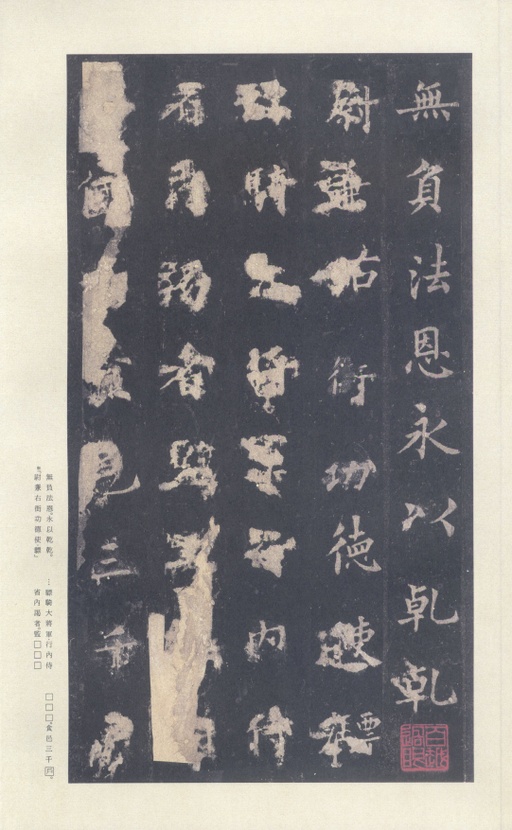 無負法恩永以乹乹
尉兼右街功德使驃
騎大將軍行內侍
省內謁者監
邑三千
無負法恩，永以乾乾。
尉兼右街功德使驃
驃騎大將軍行內侍
省內謁者監□□□
□□□食邑三千